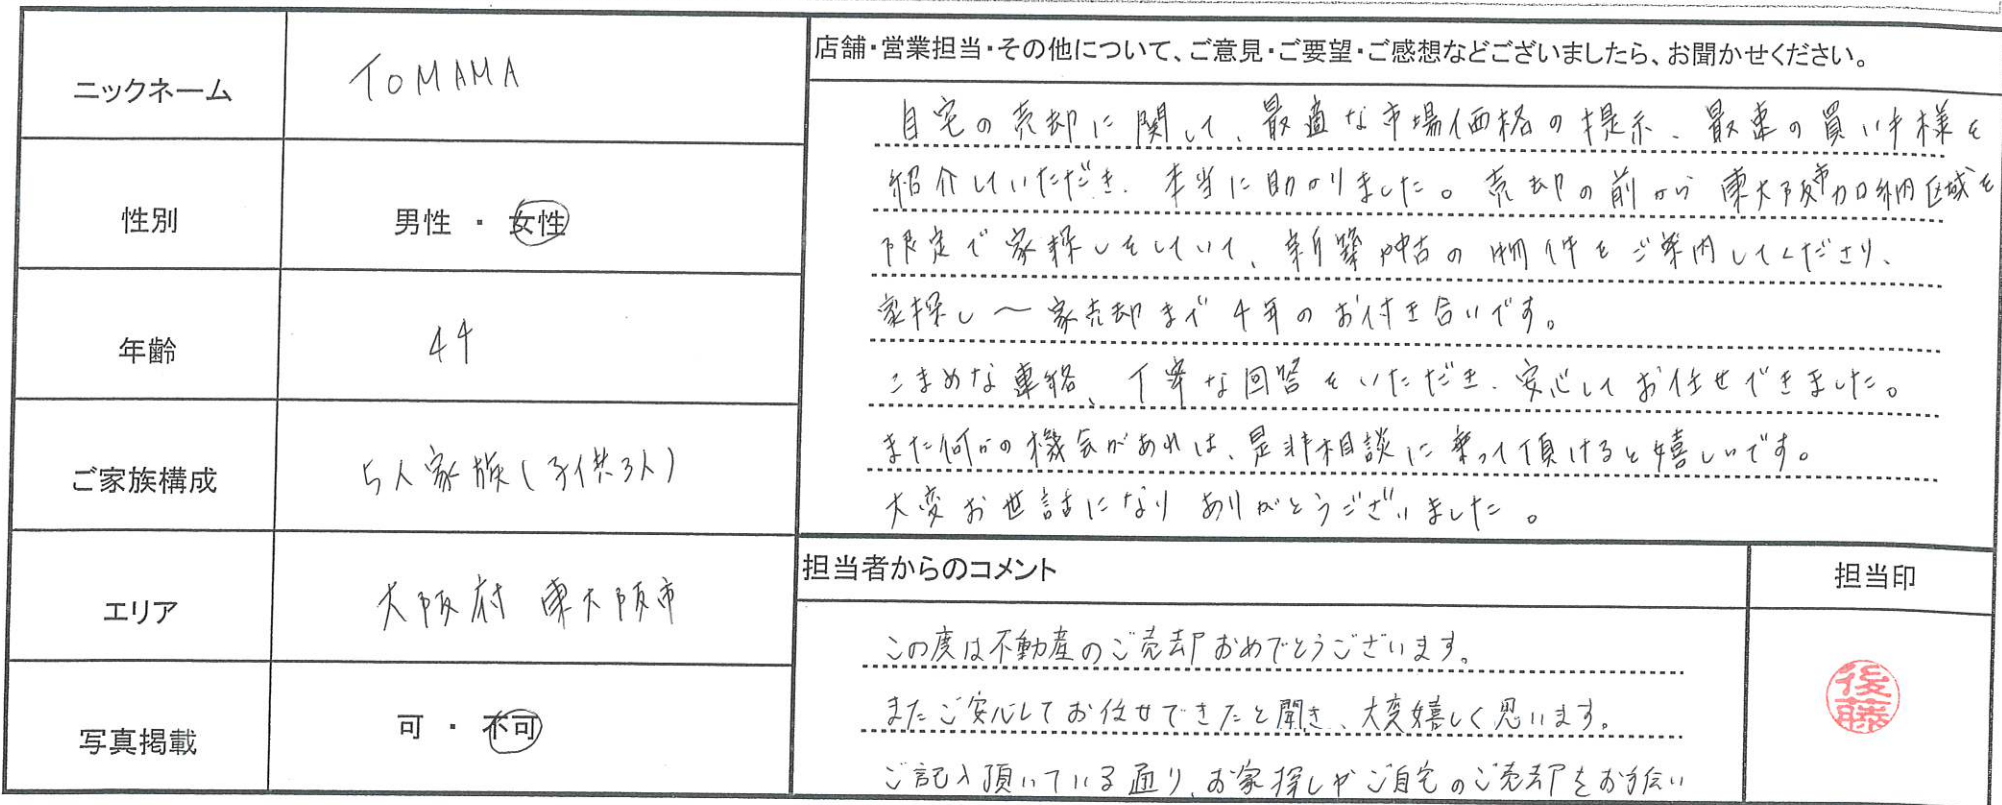 ニックネーム
TOMAMA
性別
男性 ・ 女性
年齢
44
ご家族構成
5人家族(子供3人)
エリア
大阪府 東大阪市
写真掲載
可 ・ 不可
店舗・営業担当・その他について、ご意見・ご要望・ご感想などございましたら、お聞かせください。
自宅の売却に関して、最適な市場価格の提示、最速の買い手様を
紹介していただき、本当に助かりました。売却の前から東大阪市加納区域を
限定で家探しをしていて、新築や中古の物件をご案内してくださり、
家探し〜家売却まで4年のお付き合いです。
こまめな連絡、丁寧な回答をいただき、安心してお任せできました。
また何かの機会があれば、是非相談に乗って頂けると嬉しいです。
大変お世話になりありがとうございました。
担当者からのコメント
この度は不動産のご売却おめでとうございます。
またご安心してお任せできたと聞き、大変嬉しく思います。
ご記入頂いている通り、お家探しやご自宅のご売却をお手伝い
担当印
後藤